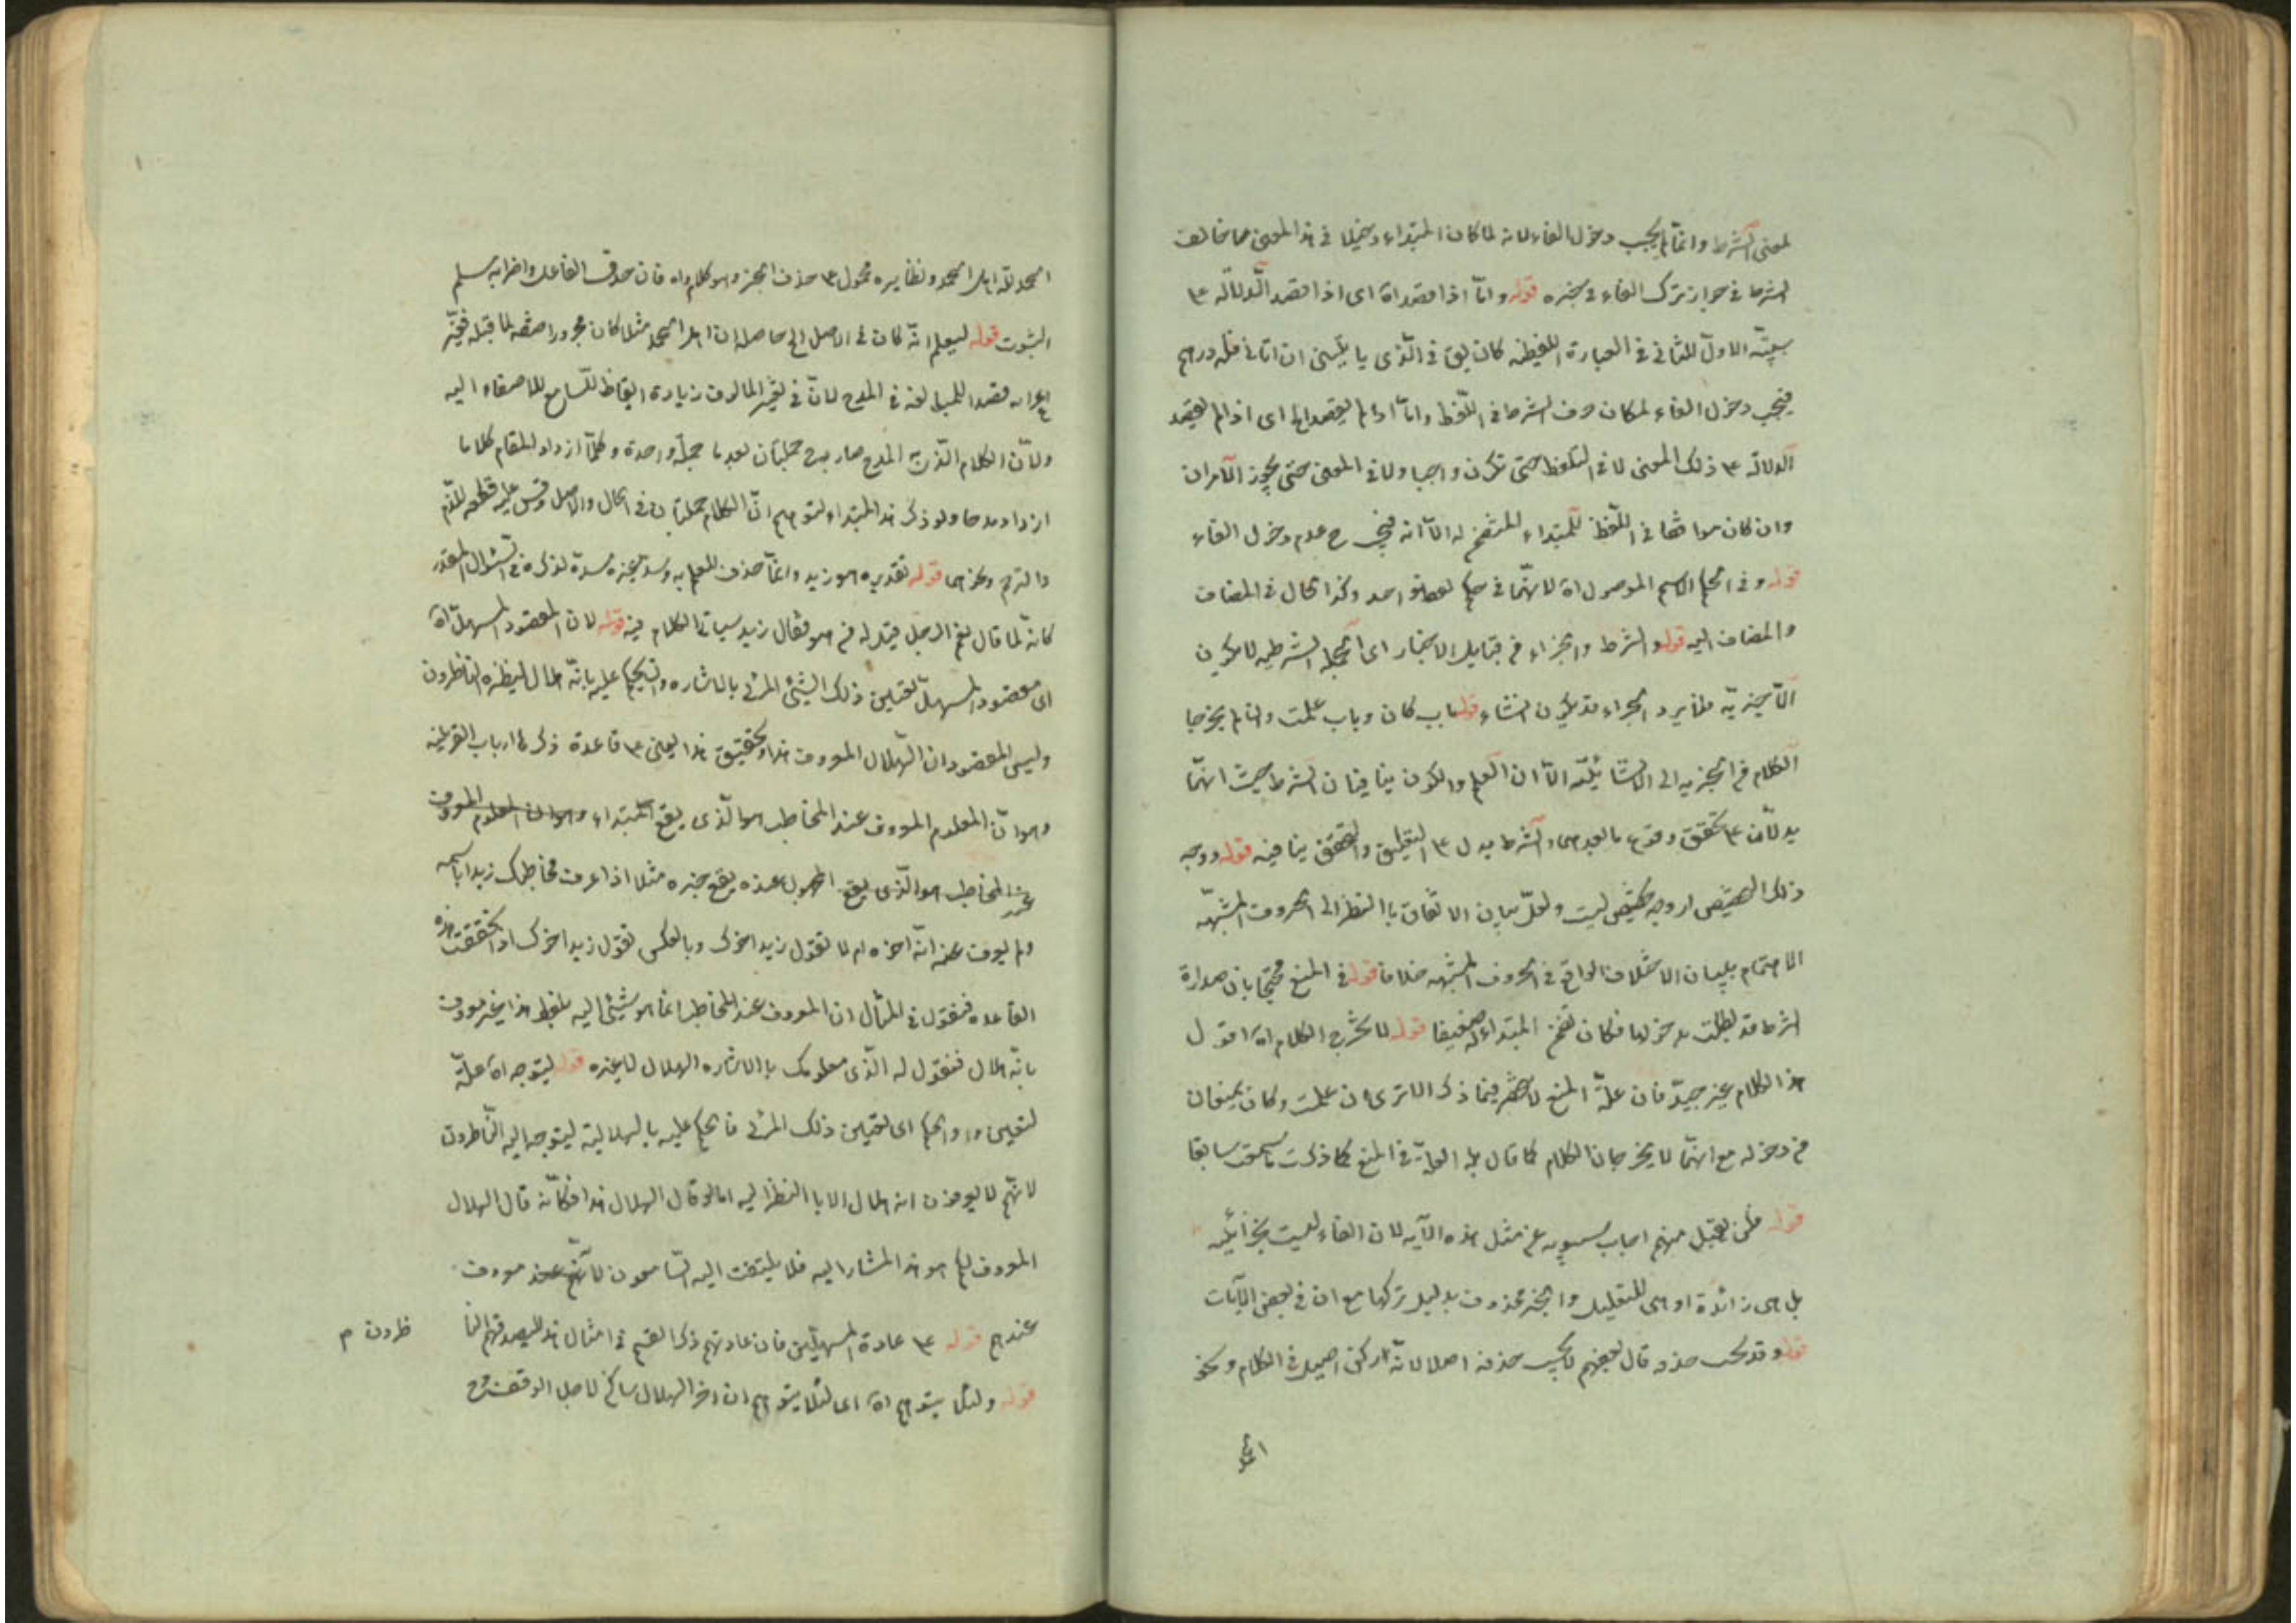 لمعنى الشرط وانما لم يجب دخول الفاء لانه لما كان المبتداء دخيلا في هذا المعنى صا مخالف
الشرط في جواز ترك الفاء في خبره قوله واما اذا قصد اه اى اذا قصد الدلالة ع
الاول للثاني في العبارة اللفظية كان يق في الذى ياتيني ان اتاني فله درهم
فيجب دخول الفاء لمكان حرف الشرط في اللفظ واما اذا لم يقصد الخ اى اذا لم يقصد
الدلالة ع ذلك المعنى لا في اللفظ حتى تكون واجبا ولا في المعنى حتى يجوز الامران
وان كان في اللفظ للمبتداء المتضمن له الا انه فيجب ح عدم دخول الفاء
قوله وفي الحكم الاسم الموصول اه لانهما في حكم لفظ واحد وكذا الحال في المضاف
والمضاف اليه قوله والشرط والجزاء من قبيل الاخبار اى الجملة الشرطية لا يكون
الا خبرية فلا يرد الجزاء قد يكون انشاء قوله باب كان وباب علمت وان لم يخرجا
الكلام من الخبرية الى الانشائية الا ان العلم والكون ينافيان الشرط حيث انهما
يدلان ع تحقق وقوع ما بعدهما والشرط يدل ع التعليق والتحقق ينافيه قوله ووجه
ذلك التخصيص اى وجه تخصيص ليت ولعل ببيان الاتفاق باالنظر الى الحروف المشبهة
الاهتمام ببيان الاختلاف الواقع في الحروف المشبهه خلافا قوله في المنع محتجا بان صدارة
الشرط قد بطلت بدخولها فكان تضمن المبتداء له ضعيفا قوله لا تخرج الكلام اه اقول
هذا الكلام غير جيد فان علة المنع لا تنحصر فيما ذكر الا ترى ان علمت وكان يمنعان
من دخوله مع انهما لا يخرجان الكلام كما قال بل العلة في المنع كما ذكرت ما سمعت سابقا
قوله فلن يقبل منهم اجاب سيبويه عن مثل هذه الآيه لان الفاء ليست بجزائيه
بل هى زائدة او هى للتعليل والخبر محذوف بدليل تركها مع ان في بعض الآيات
قوله وقد يجب حذفه قال بعضهم لا يجب حذفه اصلا لانه ركن اصيل في الكلام ونحو
الحمد
الحمد لله اهل الحمد ونظايره محمول ع حذف الخبر وهو كلام واه فان حذف الفاعل واضرابه مسلم
الثبوت قوله ليعلم انه كان في الاصل الخ حاصله ان اهل الحمد مثلا كان مجرورا صفة لما قبله فغير
اعرابه قصدا للمبالغة في المدح لان في تغير المالوف زيادة ايقاظ للسامع للاصغاء اليه
ولان الكلام الذى المدح صار ح جملتان بعد ما جملة واحدة وكلما ازداد المقام كلاما
ازداد مدحا ولو ذكر هذا المبتداء لتوهم ان الكلام جملتان في الحال والاصل وقس عليه قطعه للذم
والترحم ونحوهما قوله تقديره هو زيد وانما حذف للعلم به وسد غيره مسده لذكره في السؤال المقدر
كانه لما قال نعم الرجل قيل له من هو فقال زيد سياتي الكلام فيه قوله لان المقصود المستهل اه
اى مقصود المستهل تعيين ذلك الشئ المرئى بالاشاره والحكم عليه بانه هلال لينظره الناظرون
وليس المقصود ان الهلال المعروف هذا وتحقيق هذا يبنى ع قاعدة ذكرها ارباب القرينه
وهو ان المعلوم المعروف عند المخاطب هو الذى يقع المبتداء وهو ان المعلوم المعروف
عند المخاطب هو الذى يقع المجهول عنده يقع خبره مثلا اذا عرف مخاطبك زيدا باسمه
ولم يعرف عنه انه اخوه ام لا تقول زيد اخوك وبالعكس تقول زيد اخوك اذا تحققت هذه
القاعده فنقول في المثال ان المعروف عند المخاطب انما هو شئ اليه بلفظ هذا غير معروف
بانه هلال فنقول له الذى معلومك باالاشاره الهلال لا غيره قوله ليتوجه اه علة
لتعيين واو الحكم اى لتعيين ذلك المرئى فالحكم عليه بالهلالية ليتوجه اليه الناظرون
لانهم لا يعرفون انه هلال الا باالنظر اليه اما لو قال الهلال هذا فكانه قال الهلال
المعروف لكم هو هذا المشار اليه فلا يلتفت اليه السامعون لانهم عند معروف
عندهم قوله ع عادة المستهلين فان عادتهم ذكر القسم في امثال هذا ليصدقهم النا
ظرون م
قوله ولئلا يتوهم اه اى لئلا يتوهم ان اخر الهلال ساكن لاجل الوقف